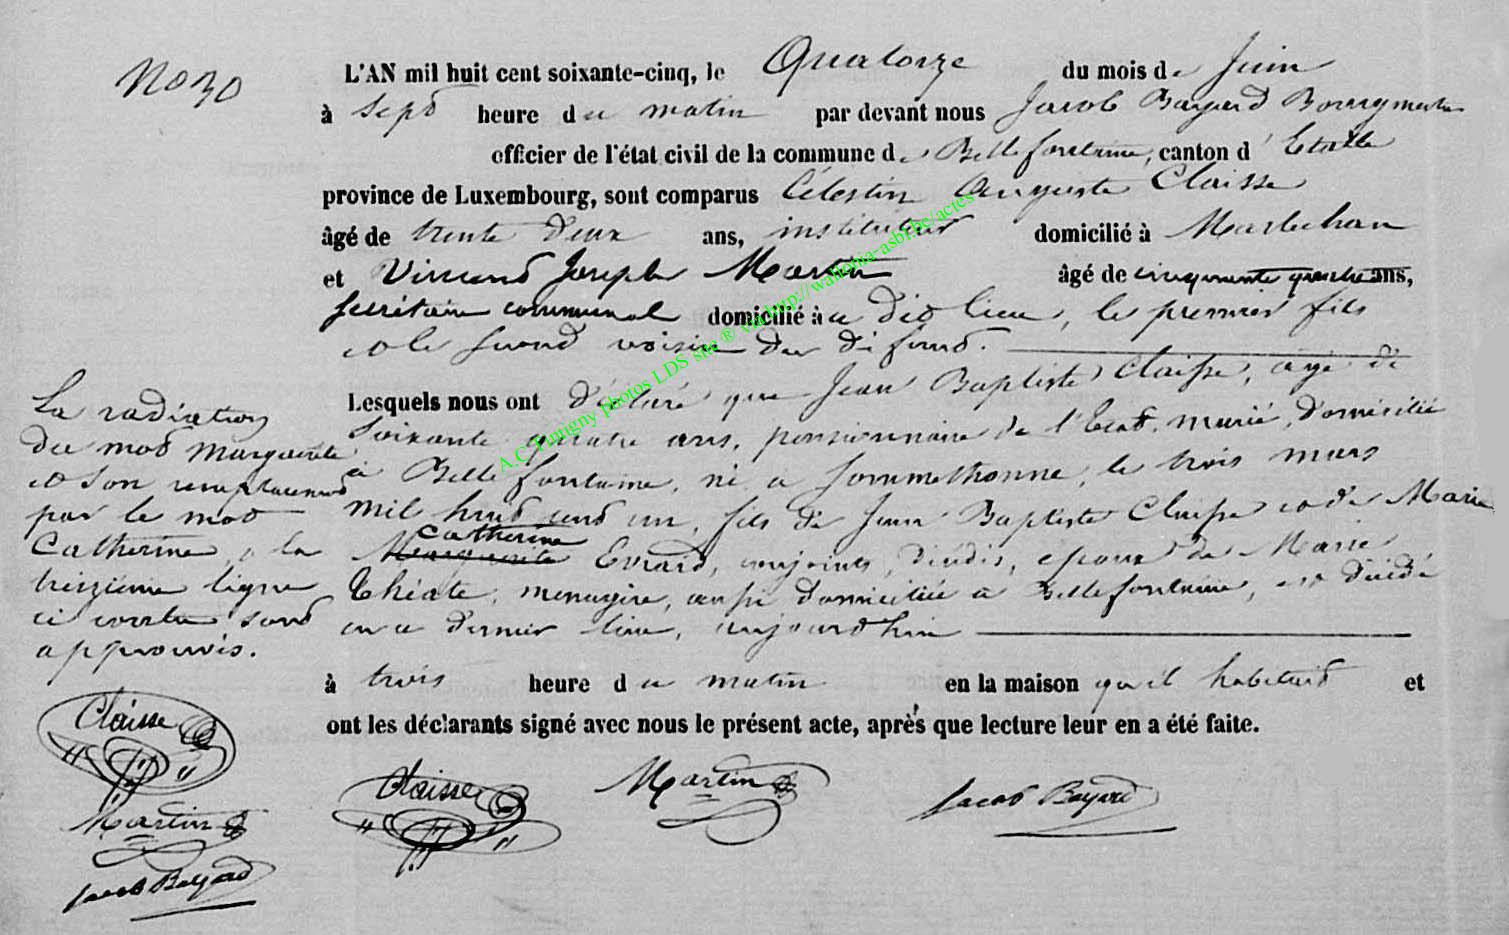 No 30
L'AN mil huit cent soixante-cinq, le Quatorze du mois de Juin
à sept heure du matin par devant nous Jacob Bayard Bourgmestre
officier de l'état civil de la commune de Bellefontaine, canton d'Etalle
province de Luxembourg, sont comparus Célestin Auguste Claisse
âgé de trente deux ans, instituteur domicilié à Martechan
et Vincent Joseph Martin âgé de cinquante quatre ans,
secrétaire communal domicilié à u dit lieu, le premier fils
et le second voisin du défunt.
Lesquels nous ont déclaré que Jean Baptiste Claisse, âgé de
soixante quatre ans, pensionnaire de l'Etat, marié, domicilié
à Bellefontaine, né à Sommethonne, le trois mars
mil huit cent un, fils de Jean Baptiste Claisse et de Marie
Catherine
Marguerite Evrard, conjoints, décédés, époux de Marie
Théate, ménagère, aussi domiciliée à Bellefontaine, est décédé
en ce dernier lieu, aujourd'hui
à trois heure du matin en la maison qu'il habitait et
ont les déclarants signé avec nous le présent acte, après que lecture leur en a été faite.
La radiation
du mot Marguerite
et son remplacement
par le mot
Catherine, à la
treizième ligne
ci contre sont
approuvés.
Claisse
Martin
Jacob Bayard
Claisse Martin Jacob Bayard
A.C Tintigny photos LDS site ® via http://wallonia-asbl.be/actes